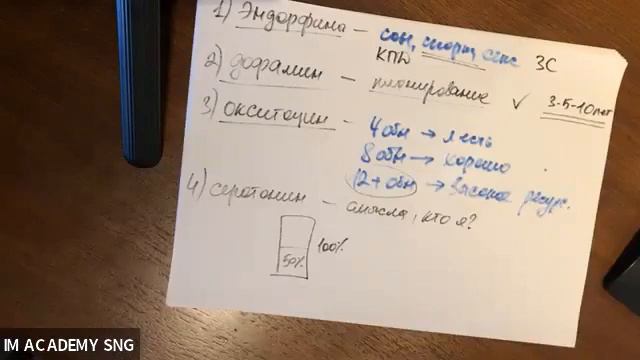 1) Эндорфина — сон, спорт, секс 3С
КПД
2) дофамин — планирование ✓ 3-5-10 лет
3) окситоцин — 4 обн → я есть
8 обн → хорошо
12+ обн → высокое ресурс.
4) серотонин — смысла, кто я?
100%
50%
IM ACADEMY SNG